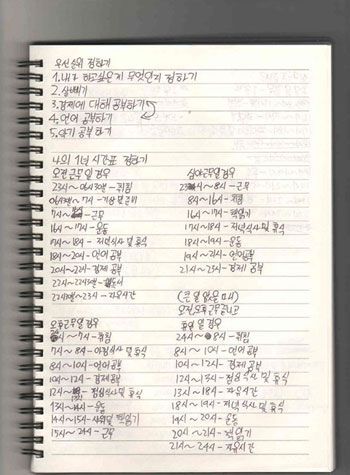 우선순위 정하기
1. 내가 하고싶은게 무엇인지 정하기
2. 살빼기
3. 경제에 대해 공부하기
4. 언어 공부하기
5. 악기 공부하기
나의 1년 시간표 정하기
오전근무일 경우
23시~06시30분-취침
06시30분~7시-기상 및 준비
7시~ -근무
16시~17시-운동
17시~18시-저녁식사 및 휴식
18시~20시-언어공부
20시~22시-경제공부
22시~22시30분-
22시30분~23시-자유시간
오후근무일 경우
~7시-취침
7시~8시-아침식사 및 휴식
8시~10시-언어공부
10시~12시-경제공부
12시~ -점심식사 및 휴식
13시~ -운동
14시~15시-샤워 및 책읽기
15시~24시-근무
심야근무일 경우
23시~8시-근무
8시~16시-취침
16시~17시-책읽기
17시~18시-저녁식사 및 휴식
18시~19시-운동
19시~21시-언어공부
21시~23시-경제공부
휴일일 경우
24시~8시-취침
8시~10시-언어공부
10시~12시-경제공부
12시~13시-점심식사 및 휴식
13시~18시-자유시간
18시~19시-저녁식사 및 휴식
19시~20시-운동
20시~21시-책읽기
21시~24시-자유시간